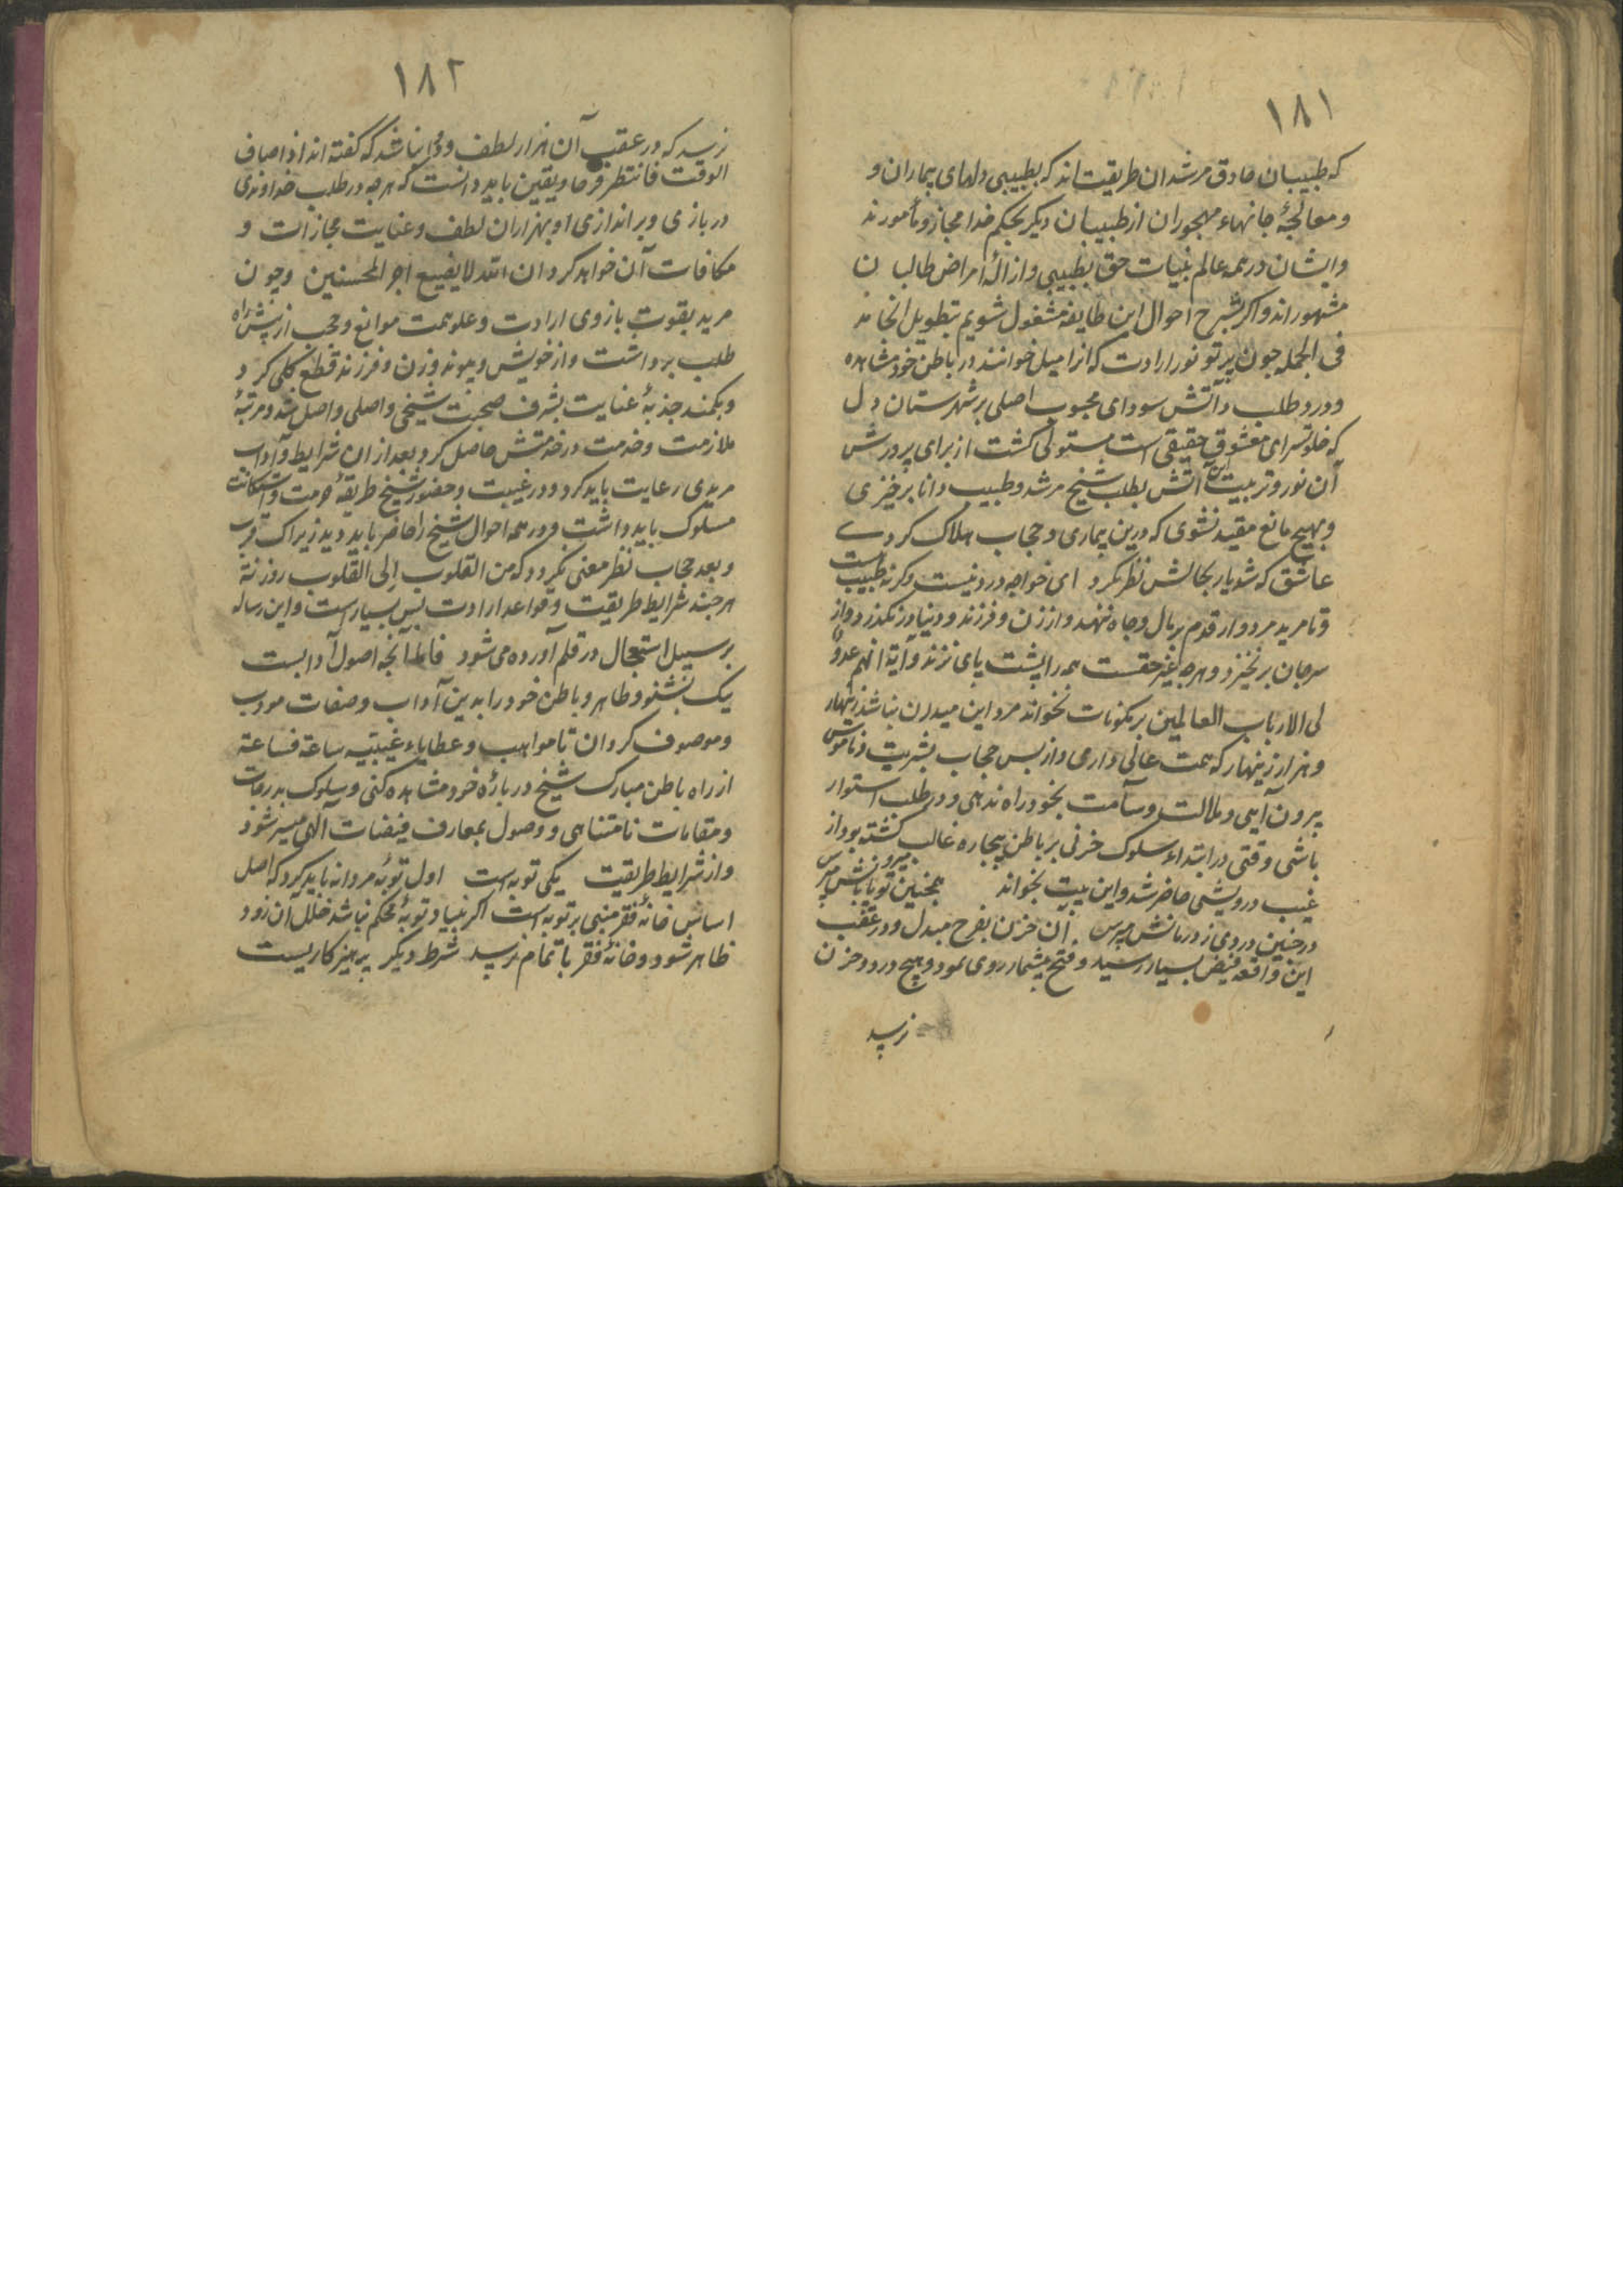 ۱۸۱
که طبیبان صادق مرشدان طریقت اند که بطبیبی دلهای بیماران و
و معالجهٔ جانهاء مهجوران از طبیبان دیگر بحکم خدا مجاز و مأمورند
و ایشان در همه عالم بنیابت حق بطبیبی و ازالهٔ امراض طالبان
مشهور اند و اگر بشرح احوال این طایفه مشغول شویم بتطویل انجامد
فی الجمله چون پرتو نور ارادت که انرا میل خوانند در باطن خود مشاهده
و درد طلب و آتش سودای محبوب اصلی بر شهرستان دل
که خلوتسرای معشوق حقیقی است مستولی گشت از برای پرورش
آن نور و تربیت این آتش بطلب شیخ مرشد و طبیب دانا برخیزی
و بهیچ مانع مقید نشوی که درین بیماری و حجاب هلاک گردے
عاشق که شد یار بحالش نظر نکرد ای خواجه درد نیست وگرنه طبیب هست
و تا مرید مردوار قدم بر مال و جاه ننهد و از زن و فرزند و دنیا در نگذرد و از
سر جان برنخیزد و هرچه غیر حقست همه را پشت پای نزند و آیة انهم عدو
لی الا رب العالمین بر مکونات نخواند مرد این میدان نباشد زنهار
و هزار زینهار که همت عالی داری و از پس حجاب بشریت و ناموس
بیرون آیی و ملالت و سآمت بخود راه ندهی و در طلب استوار
باشی وقتی در ابتداء سلوک حزنی بر باطن بیچاره غالب گشته بود از
غیب درویشی حاضر شد و این بیت بخواند همچنین تو یا بانش میرو نه پرس
در چنین دردی ز درمانش مپرس آن حزن بفرح مبدل و در عقب
این واقعه فیض بسیار رسید و فتح بیشمار روی نمود و هیچ درد و حزن
نرسد
۱۸۲
نرسد که در عقب آن هزار لطف و نباشد که گفته اند اذا ضاق
الوقت فانتظر فرحا و یقین باید دانست که هرچه در طلب خداوندی
دربازی و براندازی او بهزاران لطف و عنایت مجازات و
مکافات آن خواهد کرد ان الله لا یضیع اجر المحسنین و چون
مرید بقوت بازوی ارادت و علو همت موانع و حجب از پیش راه
طلب برداشت و از خویش و پیوند و زن و فرزند قطع کلی کرد
و بکمند جذبهٔ عنایت بشرف صحبت شیخی واصلی واصل شد و مرتبهٔ
ملازمت و خدمت در خدمتش حاصل کرد بعد از ان شرایط و آداب
مریدی رعایت باید کرد و در غیبت و حضور شیخ طریقهٔ حرمت و استکانت
مسلوک باید داشت و در همه احوال شیخ را حاضر باید دید زیراک قرب
و بعد حجاب نظر معنی نگردد که من القلوب الی القلوب روزنة
هرچند شرایط طریقت و قواعد ارادت بس بسیار است و این رساله
بر سبیل استعجال در قلم آورده می شود فاما آنچه اصول آدابست
یک بشنو و ظاهر و باطن خود را بدین آداب و صفات مودب
و موصوف گردان تا مواهب و عطایاء غیبیه ساعة فساعة
از راه باطن مبارک شیخ در بارهٔ خود مشاهده کنی و سلوک بدرجات
و مقامات نامتناهی و وصول بمعارف فیضات آلهی میسر شود
و از شرایط طریقت یکی توبه است اول توبهٔ مردانه باید کرد که اصل
اساس خانهٔ فقر مبنی بر توبه است اگر بنیاد توبهٔ محکم نباشد خلل آن زود
ظاهر شود و خانهٔ فقر باتمام نرسد شرط دیگر پرهیزکاریست